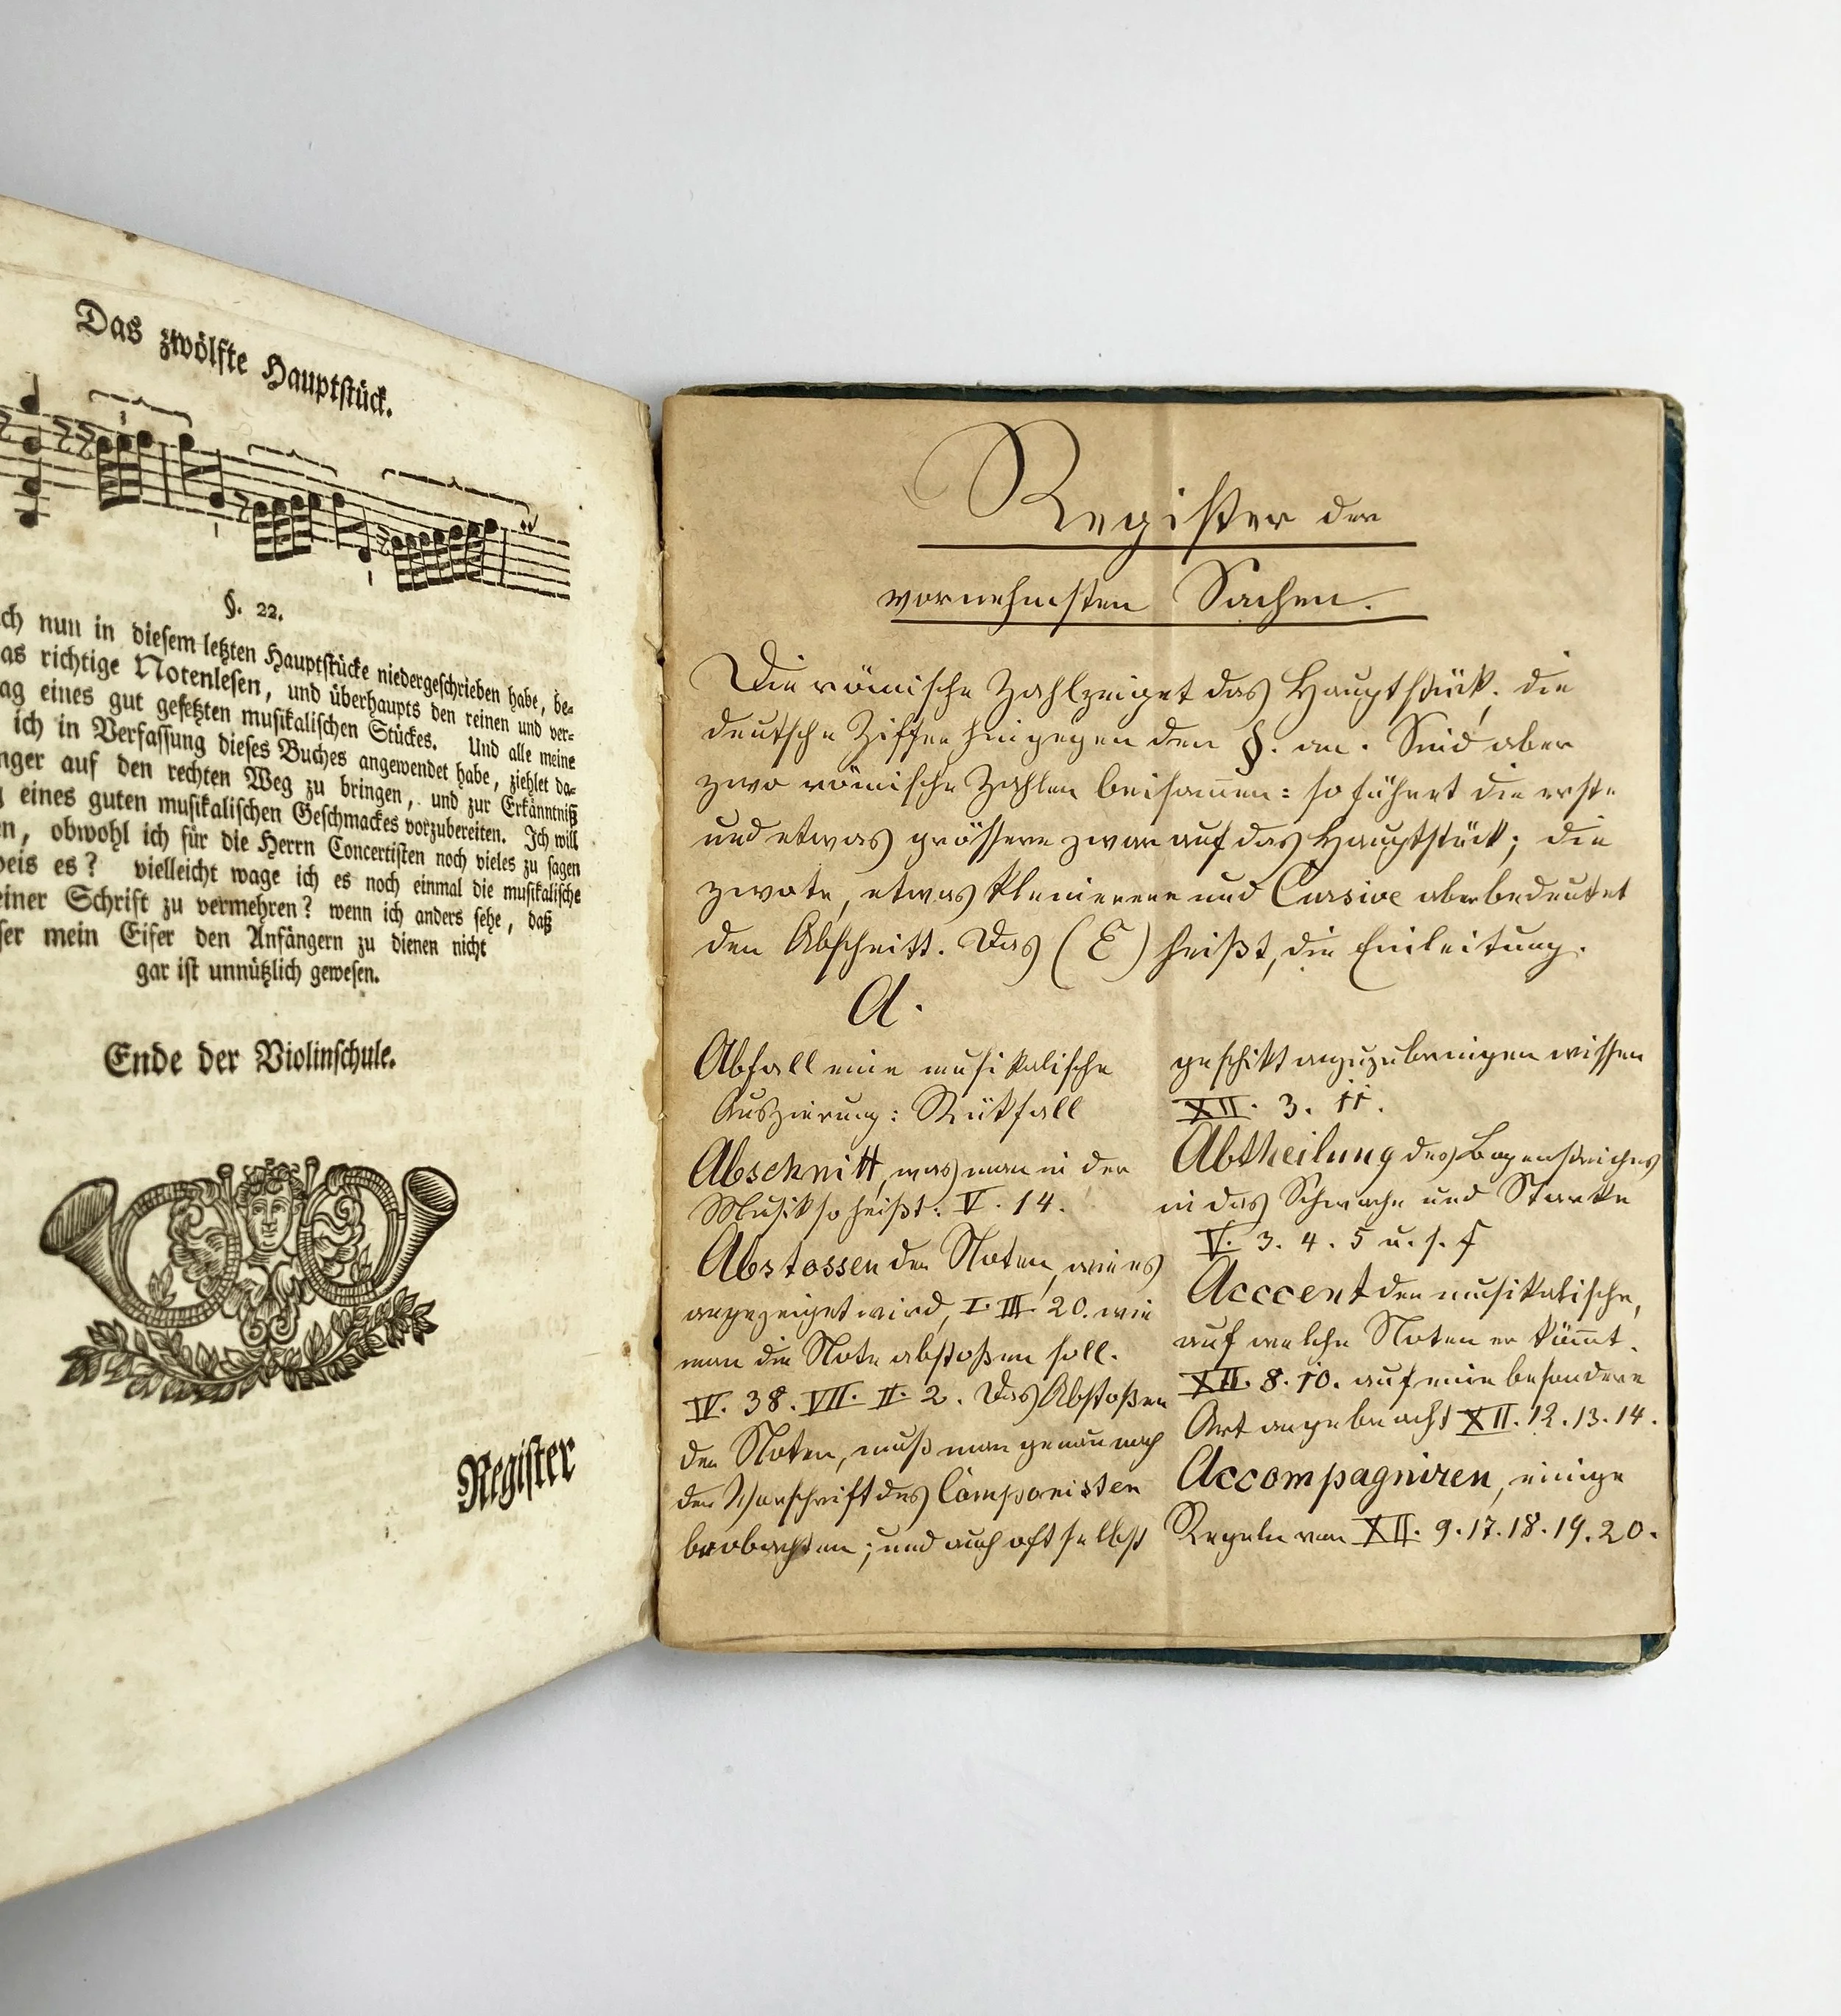 Das zwölfte Hauptstück.
3
1
1
§. 22.
ch nun in diesem letzten Hauptstücke niedergeschrieben habe, be-
as richtige Notenlesen, und überhaupts den reinen und ver-
ag eines gut gesetzten musikalischen Stückes. Und alle meine
ich in Verfassung dieses Buches angewendet habe, ziehlet da-
nger auf den rechten Weg zu bringen, und zur Erkänntniß
g eines guten musikalischen Geschmackes vorzubereiten. Ich will
en, obwohl ich für die Herrn Concertisten noch vieles zu sagen
weis es? vielleicht wage ich es noch einmal die musikalische
einer Schrift zu vermehren? wenn ich anders sehe, daß
ser mein Eifer den Anfängern zu dienen nicht
gar ist unnützlich gewesen.
Ende der Violinschule.
Register
Register der
vornehmsten Sachen.
Die römische Zahl zeiget das Hauptstück, die
deutsche Ziffer hingegen den §. an. Sind aber
zwo römische Zahlen beisam̄en: so führet die erste
und etwas grössere zwar auf das Hauptstück; die
zwote, etwas kleinerere und Cursive aber bedeutet
den Abschnitt. Das (E) heißt, die Einleitung.
A.
Abfall eine musikalische
Auszierung: Rükfall
Abschnitt, was man in der
Musik so heißt: V. 14.
Abstossen der Noten, wie es
angezeiget wird, I. III. 20. wie
man die Note abstoßen soll.
IV. 38. VII. II. 2. Das Abstoßen
der Noten, muß man genau nach
der Vorschrift des Componisten
beobachten; und auch oft selbst
geschikt anzuzubringen wissen
XII. 3. 11.
Abtheilung des Bogenstriches
in das Schwache und Starke
V. 3. 4. 5 u. s. f
Acccent der musikalische,
auf welche Noten er köm̄t.
XII. 8. 10. auf eine besondere
Art angebracht XII. 12. 13. 14.
Accompagniren, einige
Regeln von XII. 9. 17. 18. 19. 20.